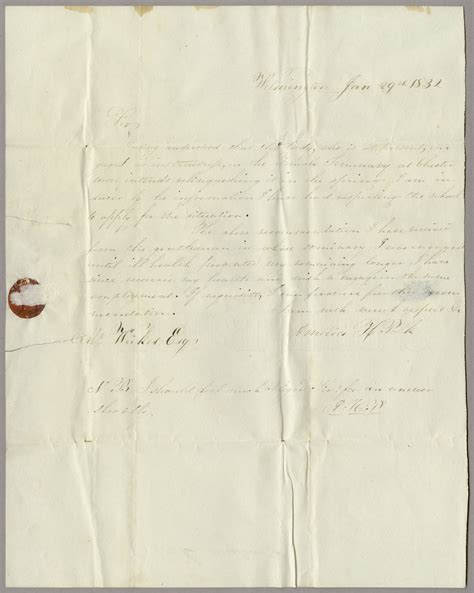 Wilmington Jan 29th 1832
Sir,
Having understood that the lady, who is at present,
in the Female Seminary at Chester
town, intends relinquishing it in the spring, I am in
duced by the information I have had respecting the school
to apply for the situation.
The above recommendation I have received
from the gentleman in whose seminary I was engaged
until ill health prevented my remaining longer. I have
since recovered my health and wish to engage in the same
employment. If requisite, I can
mendation. I am with much respect &c
Wickes Esq.
N.B. I should feel much obliged for an answer
shortly.